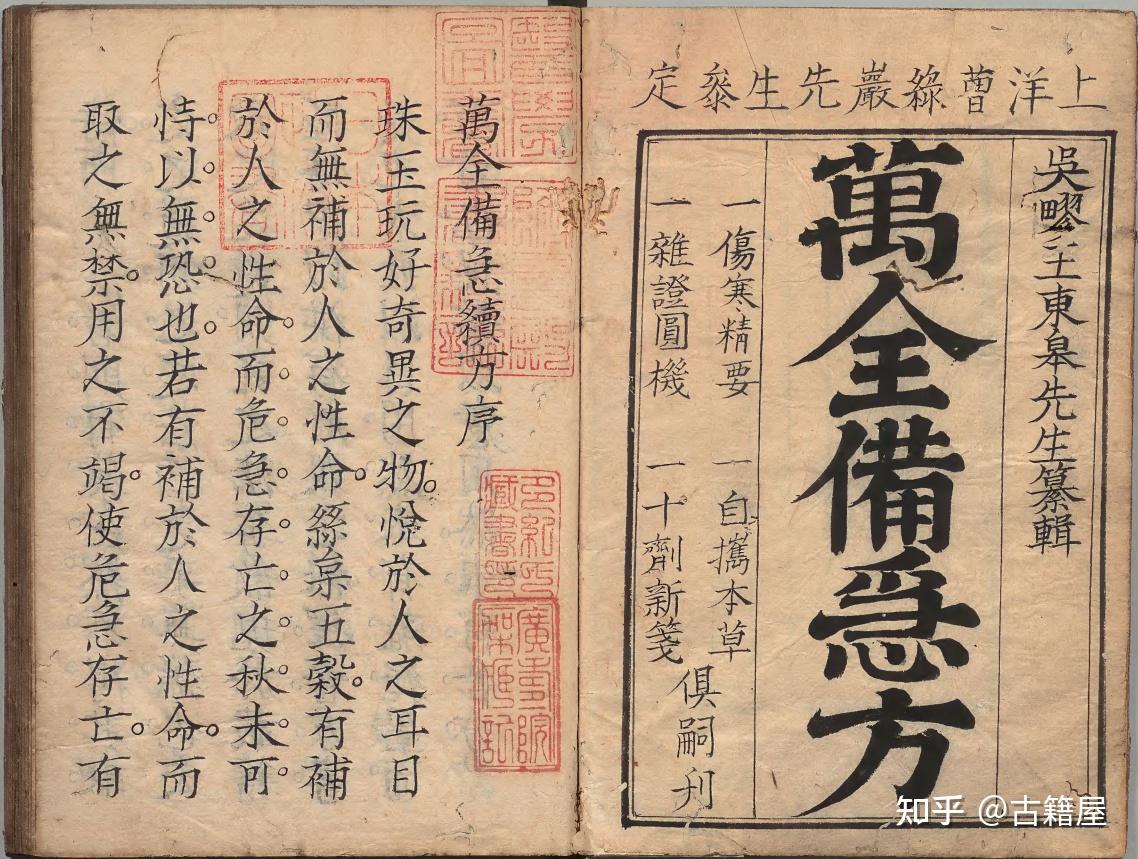 上洋曹綠巖先生叅定
吳疁王東皋先生纂輯
萬全備急方
一傷寒精要 一自攜本草
一雜證圓機 一十劑新箋
俱嗣刊
萬全備急續方序
珠玉玩好奇異之物。悅於人之耳目
而無補於人之性命。絲枲五穀。有補
於人之性命。而危急存亡之秋。未可
恃以無恐也。若有補於人之性命。而
取之無禁。用之不竭。使危急存亡。有
多紀氏藏書印
廣壽院架藏記
知乎 @古籍屋